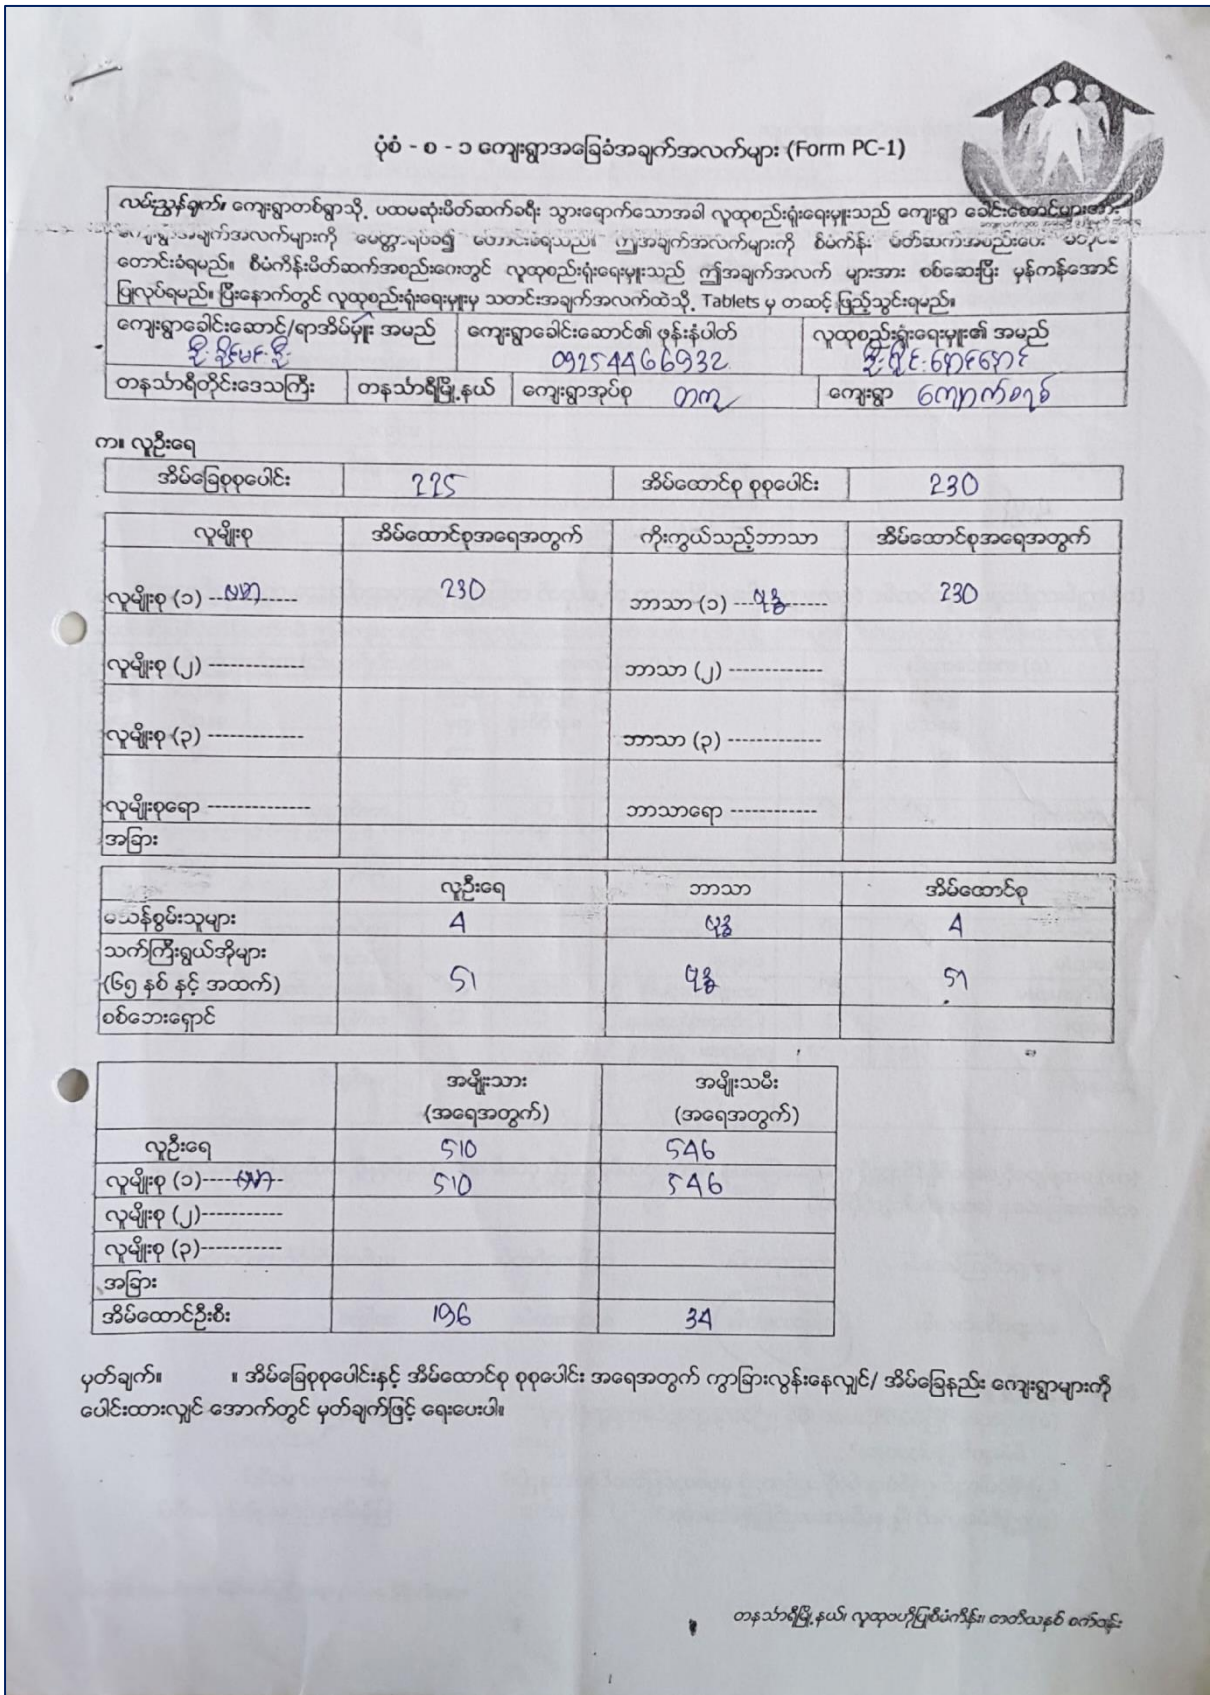 ပုံစံ - စ - ၁ ကျေးရွာအခြေခံအချက်အလက်များ (Form PC-1)
လမ်းညွှန်ချက်။ ကျေးရွာတစ်ရွာသို့ ပထမဆုံးမိတ်ဆက်ခရီး သွားရောက်သောအခါ လူထုစည်းရုံးရေးမှူးသည် ကျေးရွာ ခေါင်းဆောင်များအား
ကျေးရွာအချက်အလက်များကို မေတ္တာရပ်ခံ၍ တောင်းခံရမည်။ ဤအချက်အလက်များကို စီမံကိန်း မိတ်ဆက်အစည်းဝေး မတိုင်မီ
တောင်းခံရမည်။ စီမံကိန်းမိတ်ဆက်အစည်းဝေးတွင် လူထုစည်းရုံးရေးမှူးသည် ဤအချက်အလက် များအား စစ်ဆေးပြီး မှန်ကန်အောင်
ပြုလုပ်ရမည်။ ပြီးနောက်တွင် လူထုစည်းရုံးရေးမှူးမှ သတင်းအချက်အလက်ထဲသို့ Tablets မှ တဆင့် ဖြည့်သွင်းရမည်။
ကျေးရွာခေါင်းဆောင်/ရာအိမ်မှူး အမည် ကျေးရွာခေါင်းဆောင်၏ ဖုန်းနံပါတ် လူထုစည်းရုံးရေးမှူး၏ အမည်
09254466932
တနင်္သာရီတိုင်းဒေသကြီး တနင်္သာရီမြို့နယ် ကျေးရွာအုပ်စု တကူ ကျေးရွာ ကျောက်စရစ်
က။ လူဦးရေ
အိမ်ခြေစုစုပေါင်း 225 အိမ်ထောင်စု စုစုပေါင်း 230
လူမျိုးစု အိမ်ထောင်စုအရေအတွက် ကိုးကွယ်သည့်ဘာသာ အိမ်ထောင်စုအရေအတွက်
လူမျိုးစု (၁) ---ဗမာ--- 230 ဘာသာ (၁) ---ဗုဒ္ဓ--- 230
လူမျိုးစု (၂) ------------- ဘာသာ (၂) -------------
လူမျိုးစု (၃) ------------- ဘာသာ (၃) -------------
လူမျိုးစုရော -------------- ဘာသာရော ------------
အခြား
လူဦးရေ ဘာသာ အိမ်ထောင်စု
မသန်စွမ်းသူများ 4 ဗုဒ္ဓ 4
သက်ကြီးရွယ်အိုများ
(၆၅ နှစ် နှင့် အထက်) 51 ဗုဒ္ဓ 51
စစ်ဘေးရှောင်
အမျိုးသား အမျိုးသမီး
(အရေအတွက်) (အရေအတွက်)
လူဦးရေ 510 546
လူမျိုးစု (၁)----ဗမာ-- 510 546
လူမျိုးစု (၂)-----------
လူမျိုးစု (၃)-----------
အခြား
အိမ်ထောင်ဦးစီး 196 34
မှတ်ချက်။ ။ အိမ်ခြေစုစုပေါင်းနှင့် အိမ်ထောင်စု စုစုပေါင်း အရေအတွက် ကွာခြားလွန်းနေလျှင်/ အိမ်ခြေနည်း ကျေးရွာများကို
ပေါင်းထားလျှင် အောက်တွင် မှတ်ချက်ဖြင့် ရေးပေးပါ။
တနင်္သာရီမြို့နယ်၊ လူထုဗဟိုပြုစီမံကိန်း၊ တတိယနှစ် စက်ဝန်း